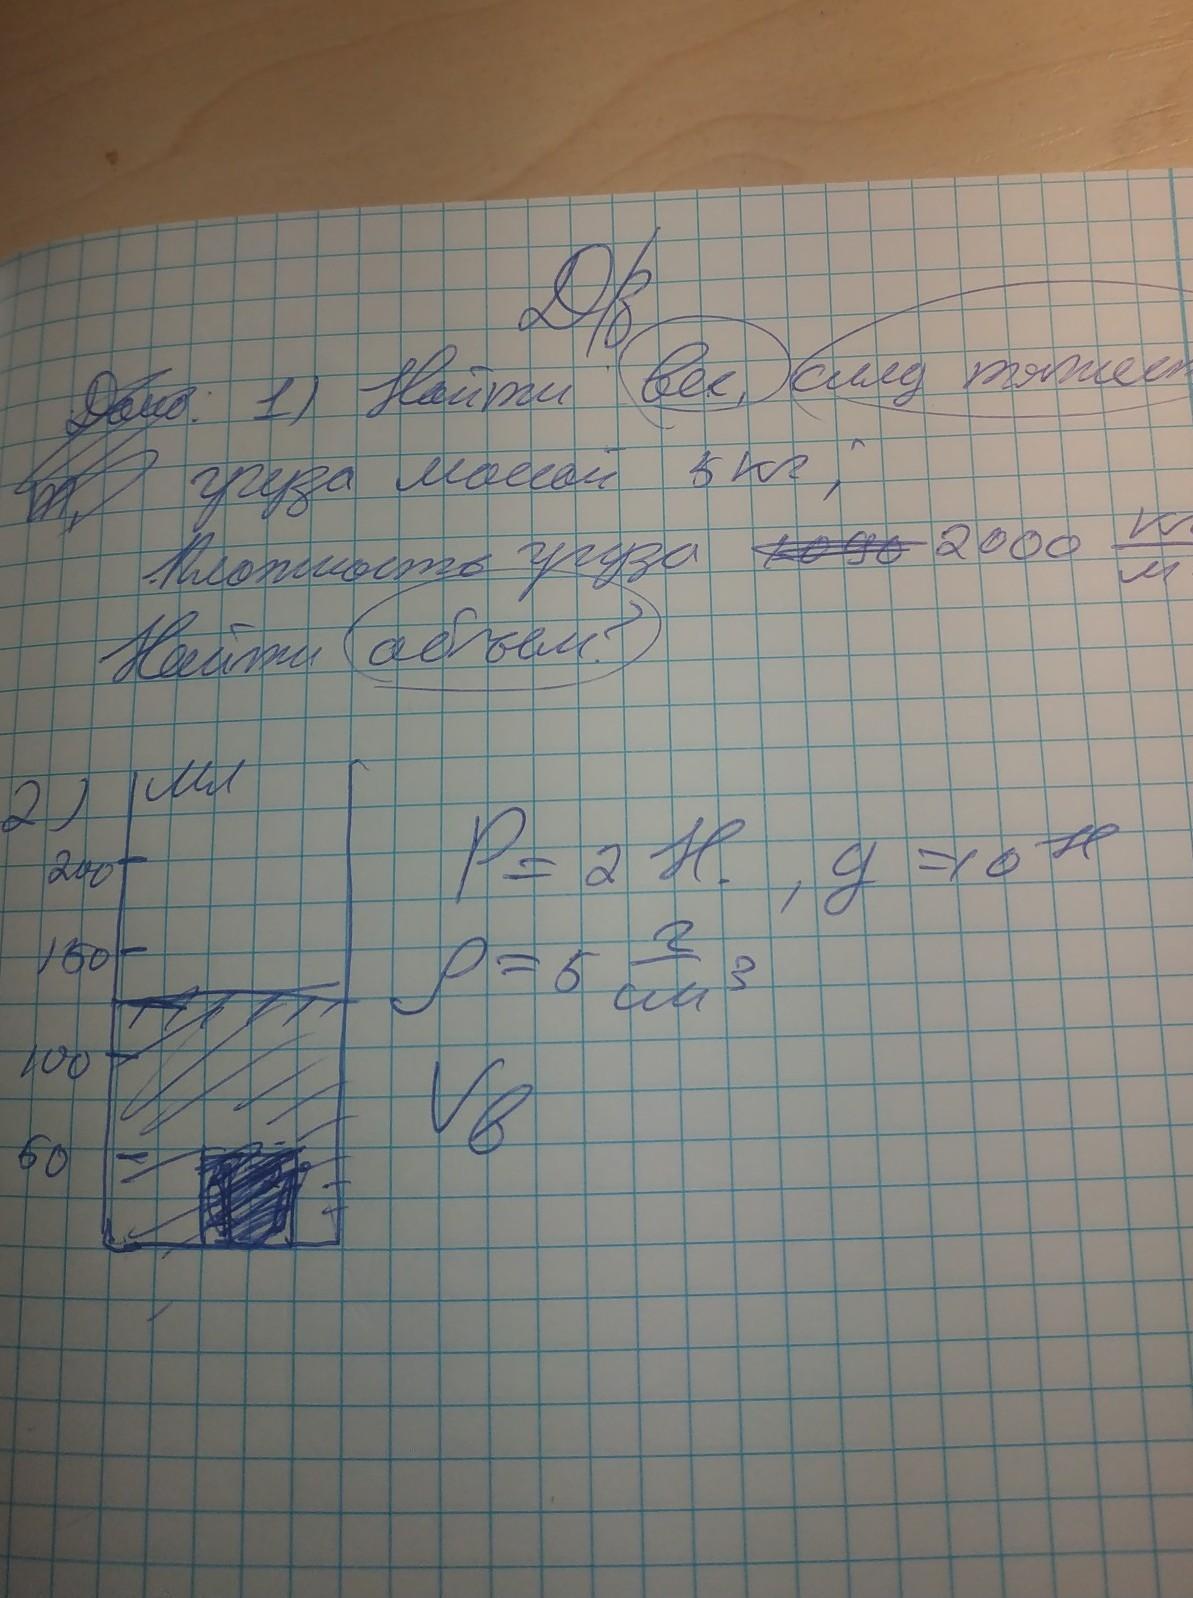 Д/з
Дано: 1) Найти вес, силу тяжест
m, груза массой 5 кг,
Плотность груза 1090 2000 кг/м
Найти объем?
2) мл
200
150
100
50
P = 2 Н. , g = 10 Н
ρ = 5 г/см³
Vв